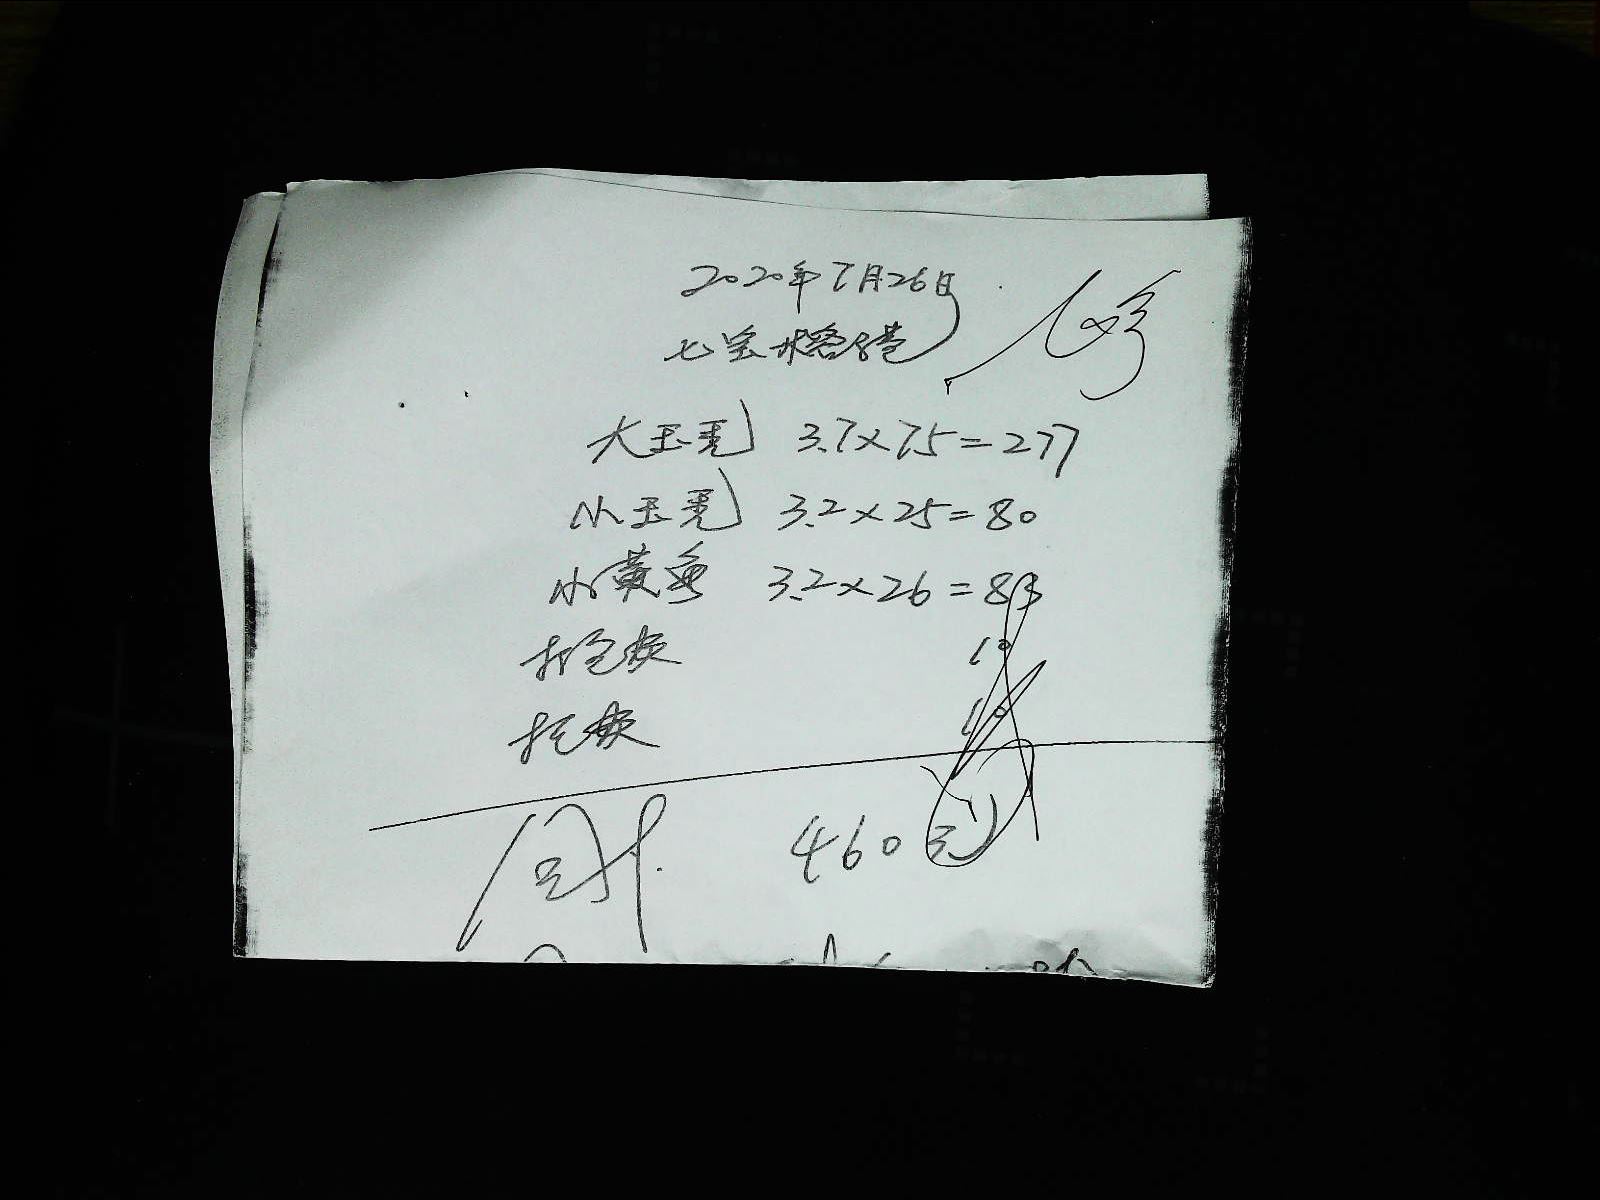 2020年7月26日
七宝
大玉毛 3.7×75=277
小玉毛 3.2×25=80
小黄鱼 3.2×26=83
打包袋 10
托板 10
460元